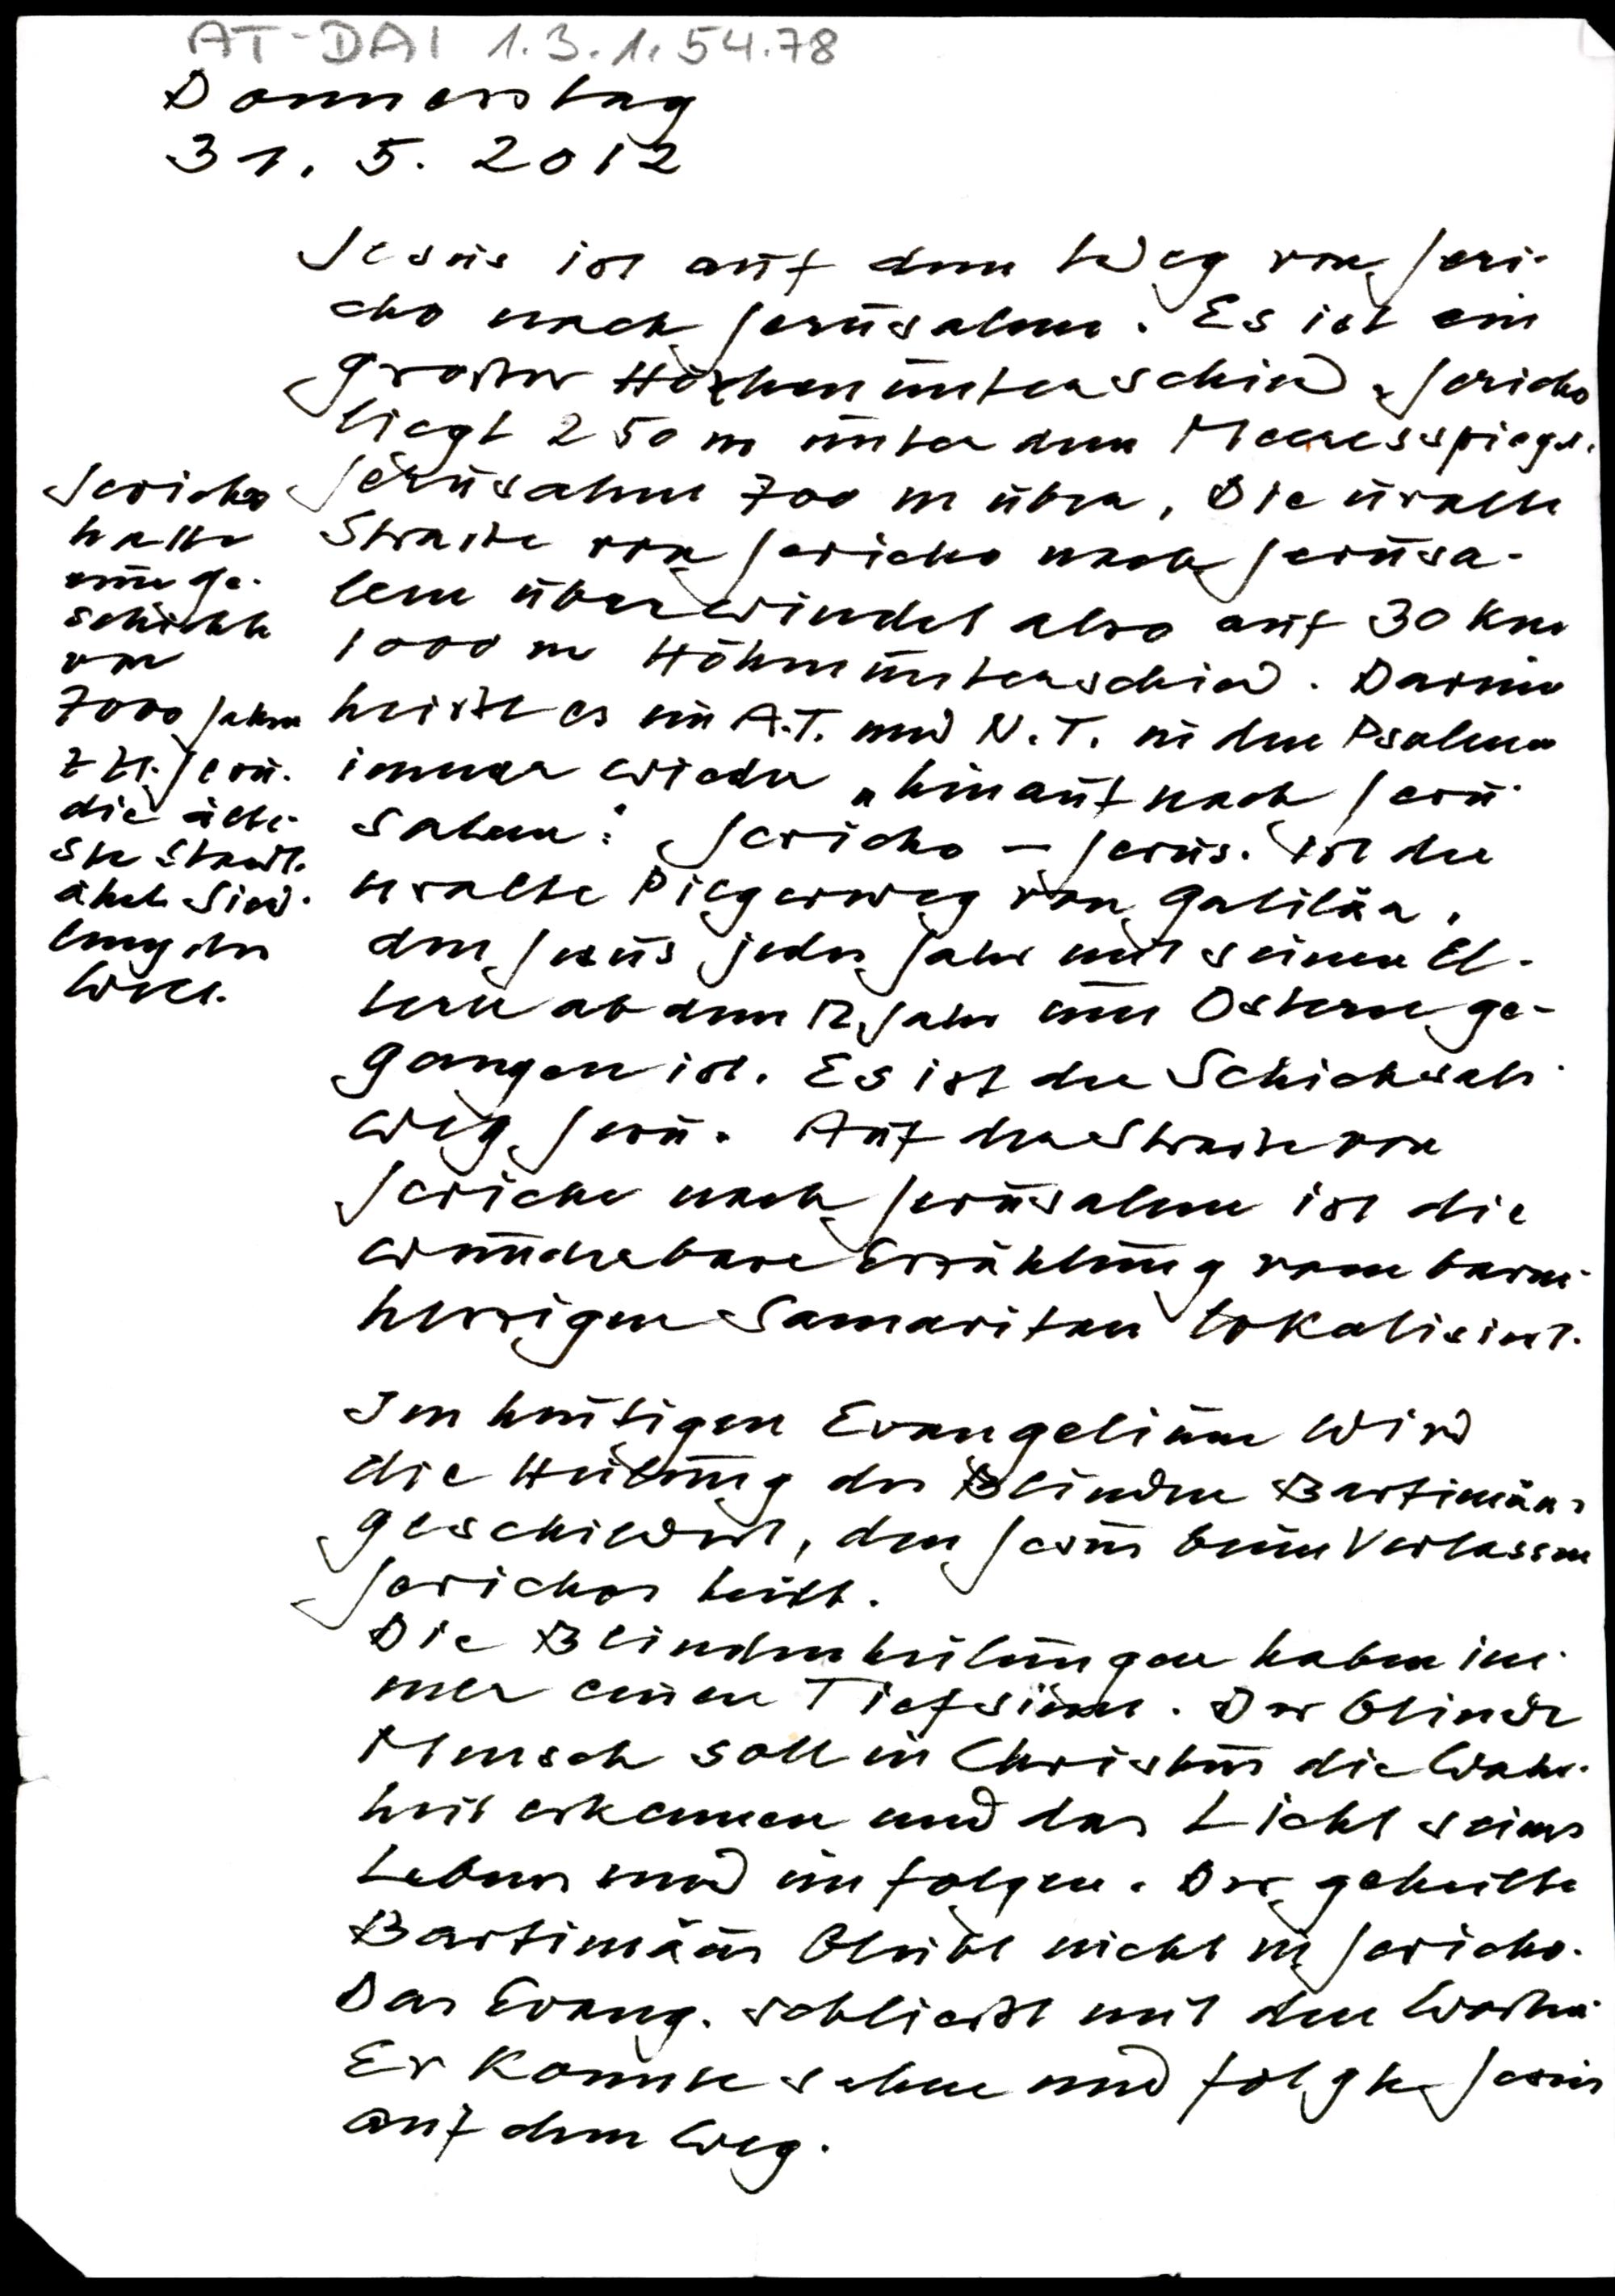 AT-DAI 1.3.1.54.78
Donnerstag
31. 5. 2012
Jesus ist auf dem Weg von Jeri-
cho nach Jerusalem. Es ist ein
großer Höhenunterschied. Jericho
liegt 250 m unter dem Meeresspiegel.
Jerusalem 700 m über. Die uralte
Straße von Jericho nach Jerusa-
lem überwindet also auf 30 km
1000 m Höhenunterschied. Darum
heißt es im A.T. und N.T. in den Psalmen
immer wieder „hinauf nach Jeru-
salem". Jericho – Jerus. ist der
uralte Pilgerweg von Galiläa,
den Jesus jedes Jahr mit seinen El-
tern ab dem 12. Jahr um Ostern ge-
gangen ist. Es ist der Schicksals-
weg Jesu. Auf der Straße von
Jericho nach Jerusalem ist die
wunderbare Erzählung vom barm-
herzigen Samaritan lokalisiert.
Jericho
hatte
eine Ge-
schichte
von
7000 Jahren
z. Zt. Jesu.
die älte-
ste
Sied-
lung der
Welt.
Im heutigen Evangelium wird
die Heilung des Blinden Bartimäus
geschildert, den Jesus beim Verlassen
Jerichos heilt.
Die Blindenheilungen haben im-
mer einen Tiefsinn. Der blinde
Mensch soll in Christus die Wahr-
heit erkennen und das Licht seines
Lebens und ihm folgen. Der geheilte
Bartimäus bleibt nicht in Jericho.
Das Evang. schließt mit den Worten:
Er konnte sehen und folgte Jesus
auf dem Weg.